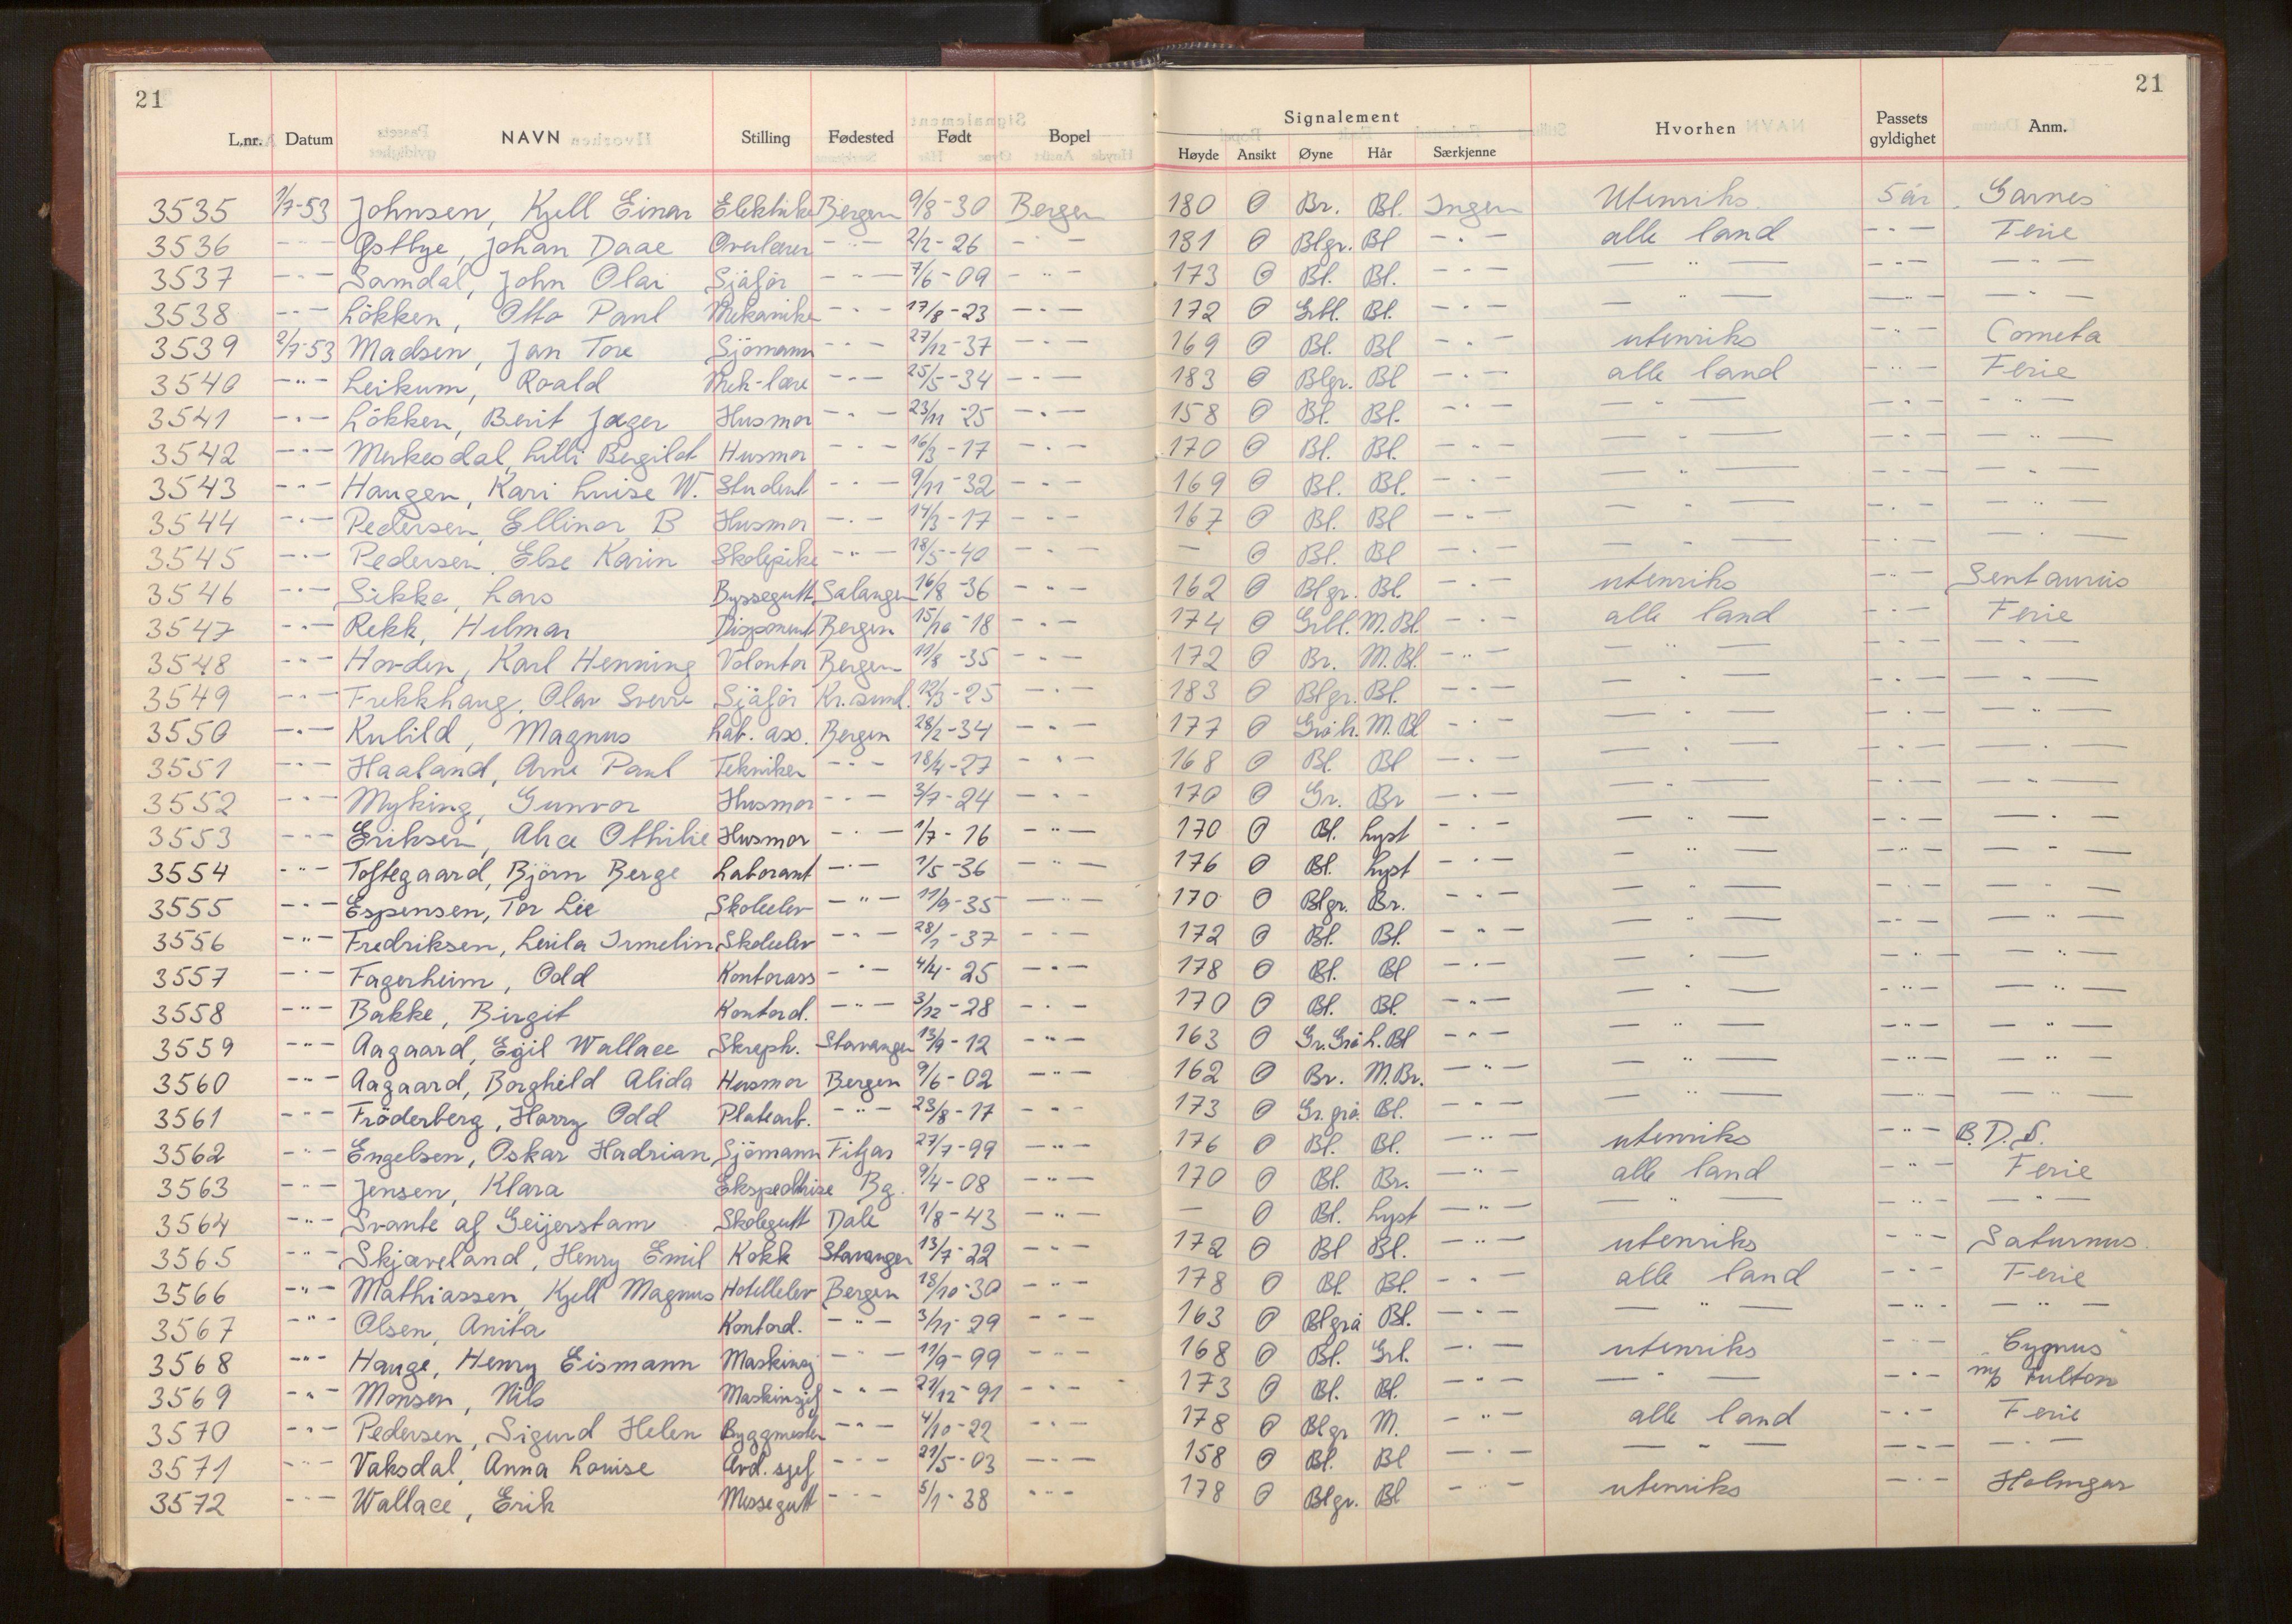 21 21
L.nr. Datum NAVN Stilling Fødested Født Bopel Signalement Hvorhen Passets gyldighet Anm.
Høyde Ansikt Øyne Hår Særkjenne
3535 1/7-53 Johnsen, Kjell Einar Elektriker Bergen 9/8-30 Bergen 180 O Br. Bl. Ingen Utenriks 5 år Garnes
3536 -"- Østbye, Johan Daae Overlærer -"- 2/2-26 -"- 181 O Blgr. Bl -"- alle land -"- Ferie
3537 -"- Samdal, John Olai Sjåfør -"- 7/6-09 -"- 173 O Bl. Bl. -"- -"- -"- -"-
3538 -"- Løkken, Otto Paul Mekaniker -"- 17/8-23 -"- 172 O Grbl. Bl. -"- -"- -"- -"-
3539 2/7-53 Madsen, Jan Tore Sjömann -"- 27/12-37 -"- 169 O Bl. Bl -"- utenriks -"- Cometa
3540 -"- Leikum, Roald Mek-lære -"- 25/5-34 -"- 183 O Blgr. Bl -"- alle land -"- Ferie
3541 -"- Løkken, Berit Jæger Husmor -"- 23/11-25 -"- 158 O Bl. Bl. -"- -"- -"- -"-
3542 -"- Merkesdal, Lilli Bergilot Husmor -"- 16/3-17 -"- 170 O Bl. Bl. -"- -"- -"- -"-
3543 -"- Haugen, Kari Luise W. Student -"- 9/11-32 -"- 169 O Bl. Bl. -"- -"- -"- -"-
3544 -"- Pedersen, Ellinor B Husmor -"- 14/3-17 -"- 167 O Bl. Bl -"- -"- -"- -"-
3545 -"- Pedersen, Else Karin Skolepike -"- 18/5-40 -"- — O Bl. Bl -"- -"- -"- -"-
3546 -"- Sikke, Lars Byssegutt Salangen 16/8-36 -"- 162 O Blgr. Bl. -"- utenriks -"- Sentaurus
3547 -"- Rekk, Hilmar Disponent Bergen 15/10-18 -"- 174 O Grbl. M.Bl. -"- alle land -"- Ferie
3548 -"- Horden, Karl Henning Volontør Bergen 11/8-35 -"- 172 O Br. M.Bl. -"- -"- -"- -"-
3549 -"- Frekkhaug, Olav Sverre Sjåfør Kr.sund. 12/3-25 -"- 183 O Blgr. Bl. -"- -"- -"- -"-
3550 -"- Kulild, Magnus Lab. ass. Bergen 28/2-34 -"- 177 O M.Bl -"- -"- -"- -"-
3551 -"- Haaland, Arne Paul Tekniker -"- 18/4-27 -"- 168 O Bl. Bl -"- -"- -"- -"-
3552 -"- Myking, Gunvor Husmor -"- 3/7-24 -"- 170 O Gr. Br -"- -"- -"- -"-
3553 -"- Eriksen, Alice Othilie Husmor -"- 1/7-16 -"- 170 O Bl. Lyst -"- -"- -"- -"-
3554 -"- Toftegaard, Björn Berge Laborant -"- 1/5-36 -"- 176 O Bl. Lyst -"- -"- -"- -"-
3555 -"- Espensen, Tor Lie Skoleelev -"- 11/9-35 -"- 170 O Blgr. Br. -"- -"- -"- -"-
3556 -"- Fredriksen, Leila Irmelin Skoleelev -"- 28/1-37 -"- 172 O Bl. Bl. -"- -"- -"- -"-
3557 -"- Fagerheim, Odd Kontorass -"- 4/4-25 -"- 178 O Bl. Bl -"- -"- -"- -"-
3558 -"- Bakke, Birgit Kontord. -"- 3/12-28 -"- 170 O Bl. Bl. -"- -"- -"- -"-
3559 -"- Aagaard, Egil Wallace Skreph. Stavanger 13/9-12 -"- 163 O Gr.Grå L.Bl -"- -"- -"- -"-
3560 -"- Aagaard, Borghild Alida Husmor Bergen 9/6-02 -"- 162 O Br. M.Br. -"- -"- -"- -"-
3561 -"- Fröderberg, Harry Odd Platearb. -"- 23/8-17 -"- 173 O Gr.grå. Bl. -"- -"- -"- -"-
3562 -"- Engelsen, Oskar Hadrian Sjömann Fitjar 27/7-99 -"- 176 O Bl. Bl. -"- utenriks -"- B.D.S.
3563 -"- Jensen, Klara Ekspeditrise Bg. 9/4-08 -"- 170 O Bl. Br. -"- alle land -"- Ferie
3564 -"- Svante af Geijerstam Skolegutt Dale 1/8-43 -"- — O Bl. Lyst -"- -"- -"- -"-
3565 -"- Skjæveland, Henry Emil Kokk Stavanger 13/7-22 -"- 172 O Bl Bl. -"- utenriks -"- Saturnus
3566 -"- Mathiassen, Kjell Magnus Hotellelev Bergen 18/10-30 -"- 178 O Bl. Bl. -"- alle land -"- Ferie
3567 -"- Olsen, Anita Kontord. -"- 3/11-29 -"- 163 O Blgrå Bl. -"- -"- -"- -"-
3568 -"- Hauge, Henry Eismann Masking -"- 11/9-99 -"- 168 O Bl. Grl. -"- utenriks -"- Cygnus
3569 -"- Monsen, Nils Maskinsjef -"- 21/12-91 -"- 173 O Bl. Bl. -"- -"- -"- m/s Fulton
3570 -"- Pedersen, Sigurd Helen Byggmester -"- 4/10-22 -"- 178 O Blgr M. -"- alle land -"- Ferie
3571 -"- Vaksdal, Anna Louise Avd. sjef -"- 21/5-03 -"- 158 O Bl. Bl -"- -"- -"- -"-
3572 -"- Wallace, Erik Messegutt -"- 5/1-38 -"- 178 O Blgr. Bl -"- utenriks -"- Holmgar